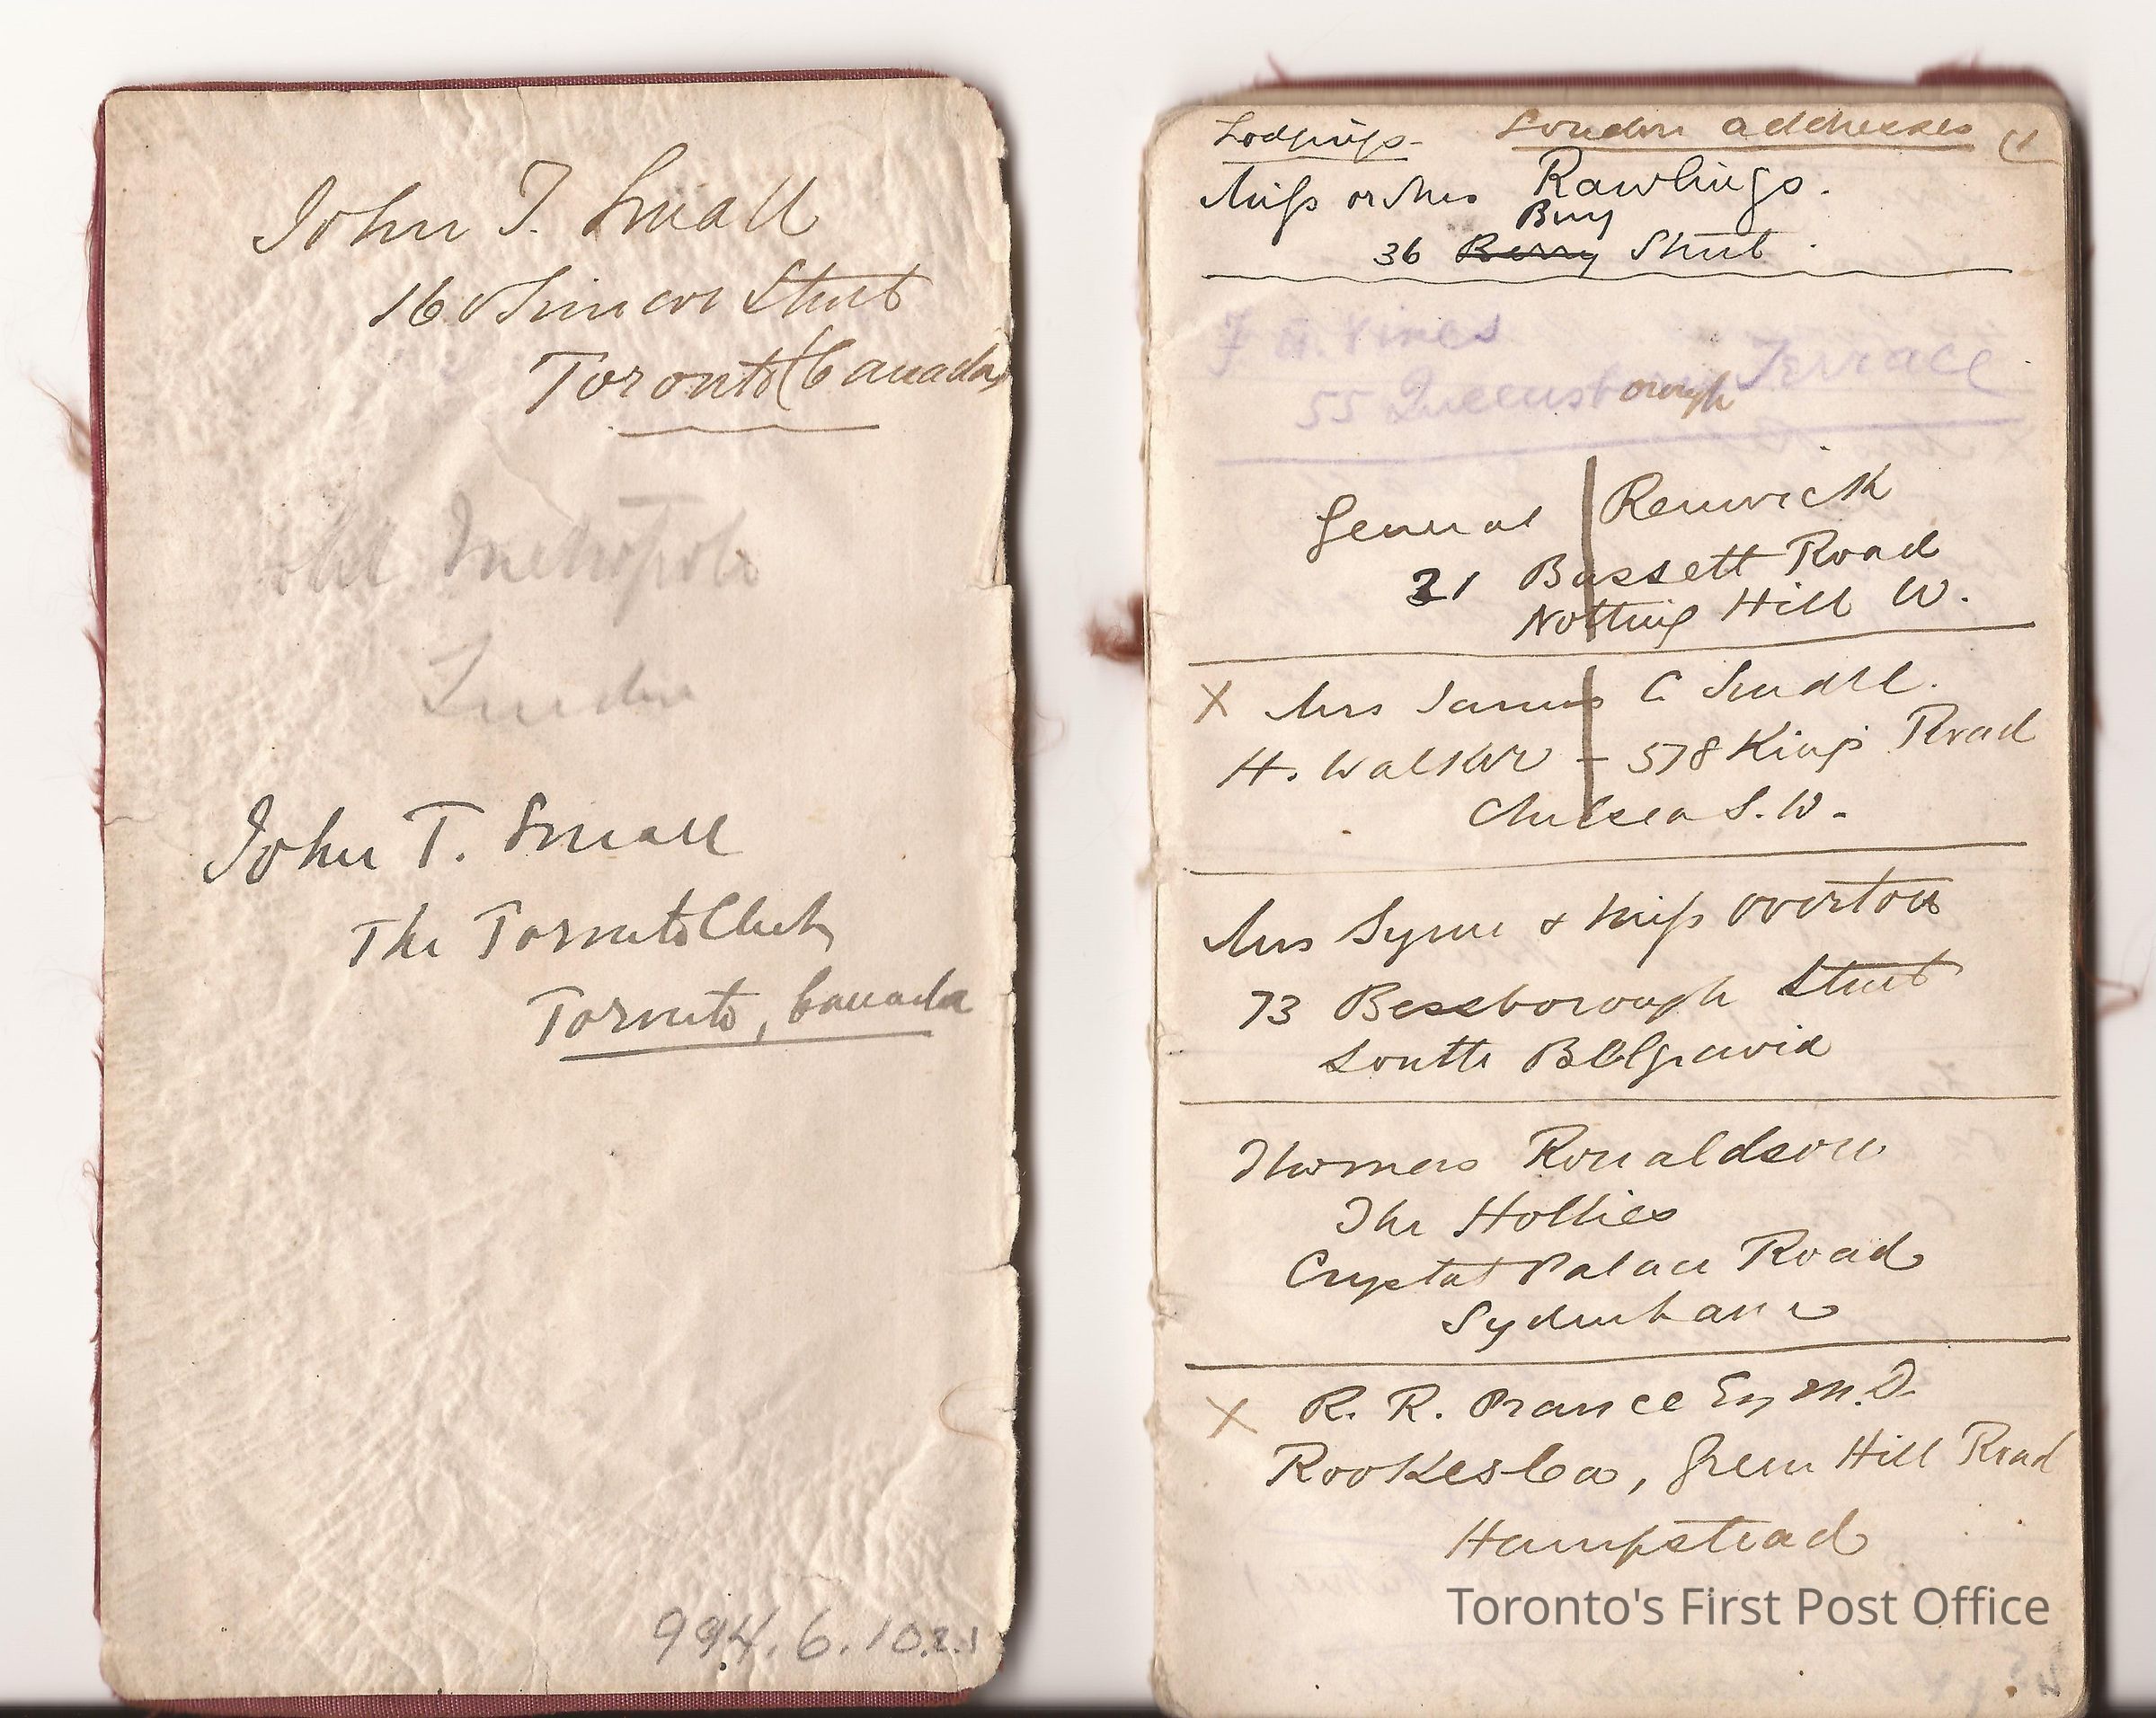 John T. Small
160 Simcoe Street
Toronto (Canada)
Hotel Metropole
London
John T. Small
The Toronto Club
Toronto, Canada
994.6.10.2.1
Lodgings- London addresses
Miss or Mrs Rawlings.
Bury
36 Berry Street.
55 Queensborough Terrace
General Renwick
21 Bassett Road
Notting Hill W.
X Mrs James C Small.
H. Walker - 578 Kings Road
Chelsea S.W.
Mrs Syme & Miss Overton
73 Bessborough Street
South Belgravia
Thomas Ronaldson
The Hollies
Crystal Palace Road
Sydenham
X R. R. Prance Esq M.D.
Rookesba, Green Hill Road
Hampstead
Toronto's First Post Office